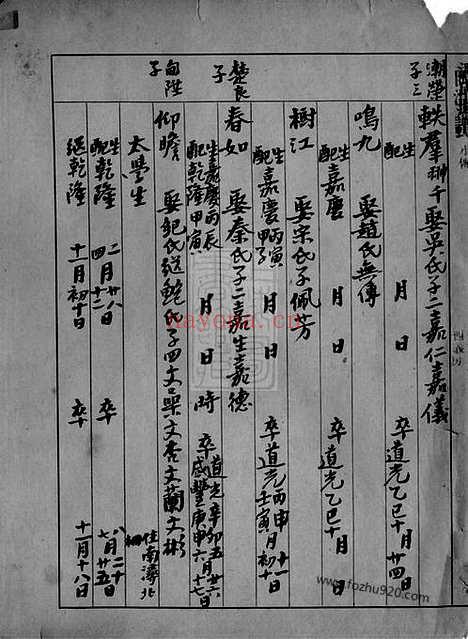 潮榮
子三
軼羣 翀千 娶吳氏子二嘉仁嘉儀
生 月 日 卒道光乙巳十月廿四日
配
鳴九 娶趙氏無傳
生嘉慶 月 日 卒道光乙巳十月 日
配
樹江 娶宗氏子佩芳
生嘉慶丙寅 月 日 卒道光丙申十一
配 甲子 壬寅月初十日
楚良
子
春如 娶秦氏子二嘉生嘉德
生嘉慶丙辰 月 日 時 卒道光辛卯五月廿六
配乾隆甲寅 咸豐庚申六月十七日
向陞
子
仰瞻 娶紀氏繼鮑氏子四文杲文杏文蘭文彬
太學生 住南潯北柵
生 二月廿八
配乾隆 四月十二日 卒 八月二十
七月廿五日
繼乾隆 十一月初十日 卒 十一月十八日
nayona.cn
www.fozhu920.com